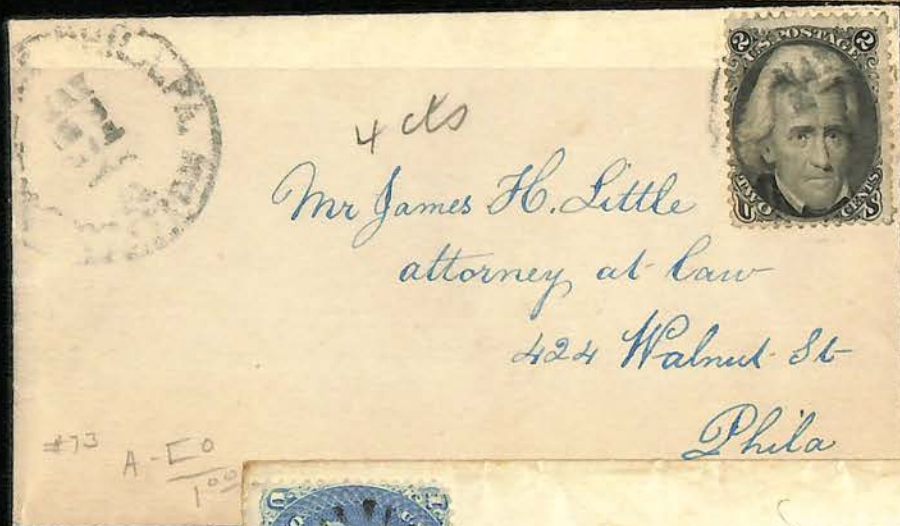 2 U.S. POSTAGE 2
TWO CENTS
U S
4 cts
Mr James H. Little
attorney at law
424 Walnut St
Phila
#73
A-
1.00